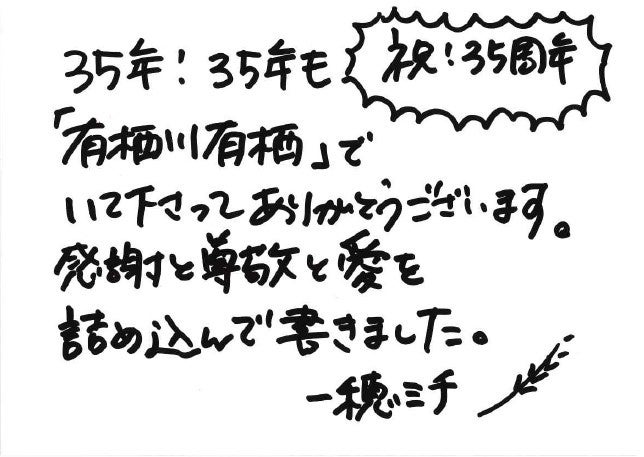 祝！35周年
35年！35年も
「有栖川有栖」で
いて下さってありがとうございます。
感謝と尊敬と愛を
詰め込んで書きました。
一穂ミチ